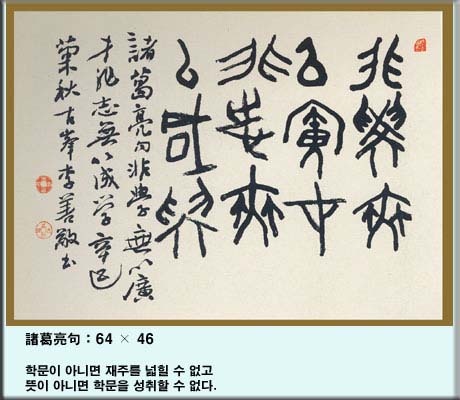 非學無
以廣才
非志無
以成學
諸葛亮句非學無以廣
才非志無以成学辛巳
菊秋古峯李善敬書
諸葛亮句 : 64 × 46
학문이 아니면 재주를 넓힐 수 없고
뜻이 아니면 학문을 성취할 수 없다.